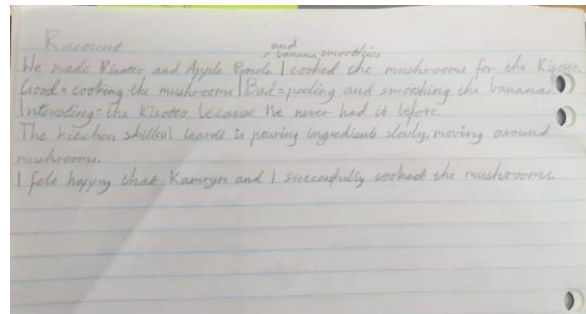 Recount
and
banana smoothies
We made Risotto and Apple Purple. I cooked the mushrooms for the Risotto.
Good = cooking the mushrooms | Bad = peeling and smooshing the bananas
Interesting = the Risotto because I've never had it before.
The kitchen skills I learnt is pouring ingredients slowly, moving around
mushrooms.
I felt happy that Kamryn and I successfully cooked the mushrooms.